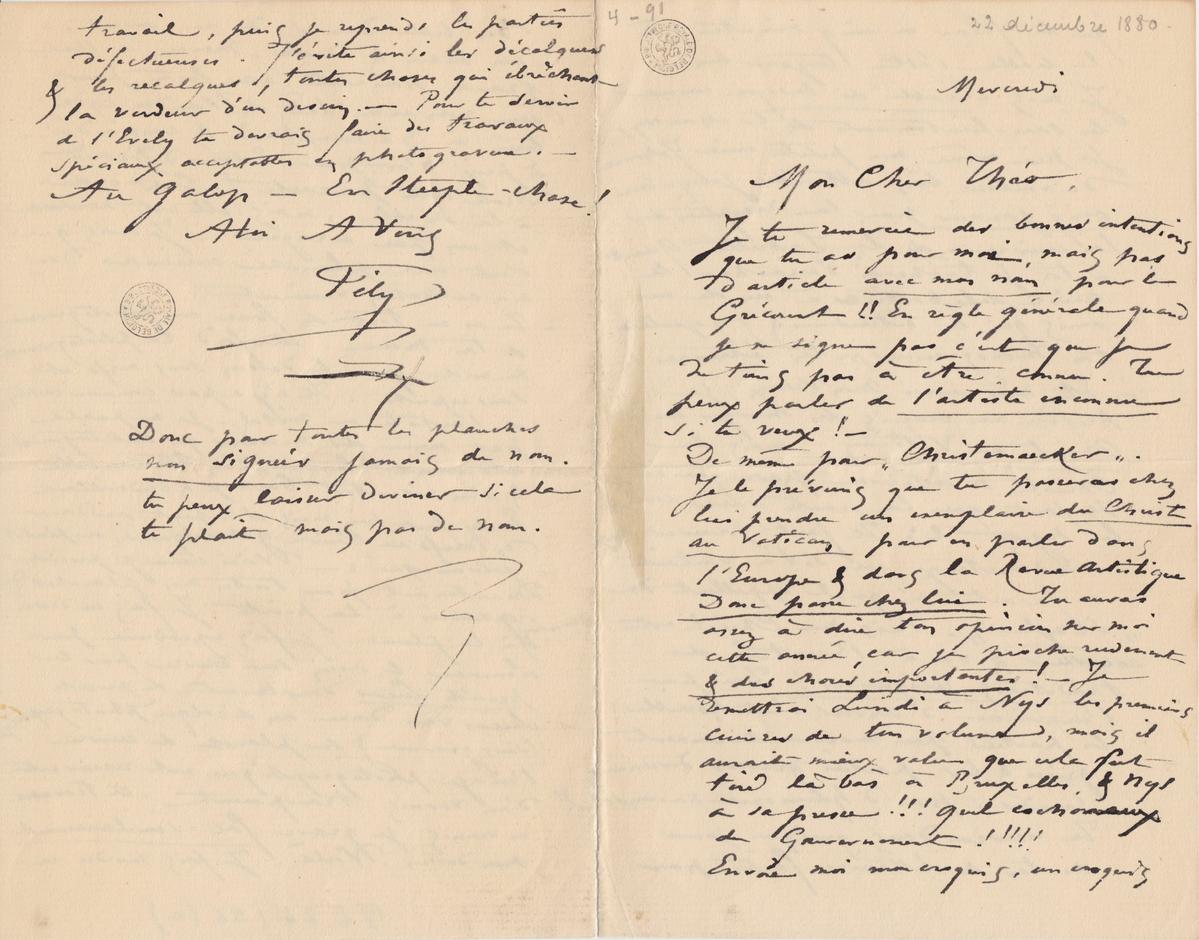 4 - 91
22 décembre 1880.
Mercredi
Mon Cher Théo,
Je te remercie des bonnes intentions
que tu as pour moi, mais pas
d'article avec mon nom pour le
Grécourt !! En règle générale quand
je ne signe pas c'est que je
ne tiens pas à être connu. Tu
peux parler de l'artiste inconnu
si tu veux ! –
De même pour „ Christemaecker „.
Je le préviens que tu passeras chez
lui prendre un exemplaire du Christ
au Vatican pour en parler dans
l'Europe & dans la Revue Artistique
Donc passe chez lui. Tu auras
assez à dire ton opinion sur moi
cette année, car je pioche rudement
& des choses importantes ! – Je
remettrai Lundi à Nys les premiers
cuivres de ton volume, mais il
aurait mieux valu que cela fut
tiré là bas à Bruxelles, & Nys
à sa presse !!! quel
de Gouvernement ! !!!!
Envoie moi mon croquis, un croquis
travail, puis je reprends les parties
défectueuses. J'évite ainsi les décalques
& les recalques, toutes choses qui ébrèchent
la verdeur d'un dessin. – Pour te servir
de l'Evely tu devrais faire des travaux
spéciaux acceptables en photogravure. –
Au Galop – En Steeple-chase !
A Vous
Fély
Donc pour toutes les planches
non signées jamais de nom.
tu peux laisser deviner si cela
te plaît mais pas de nom.